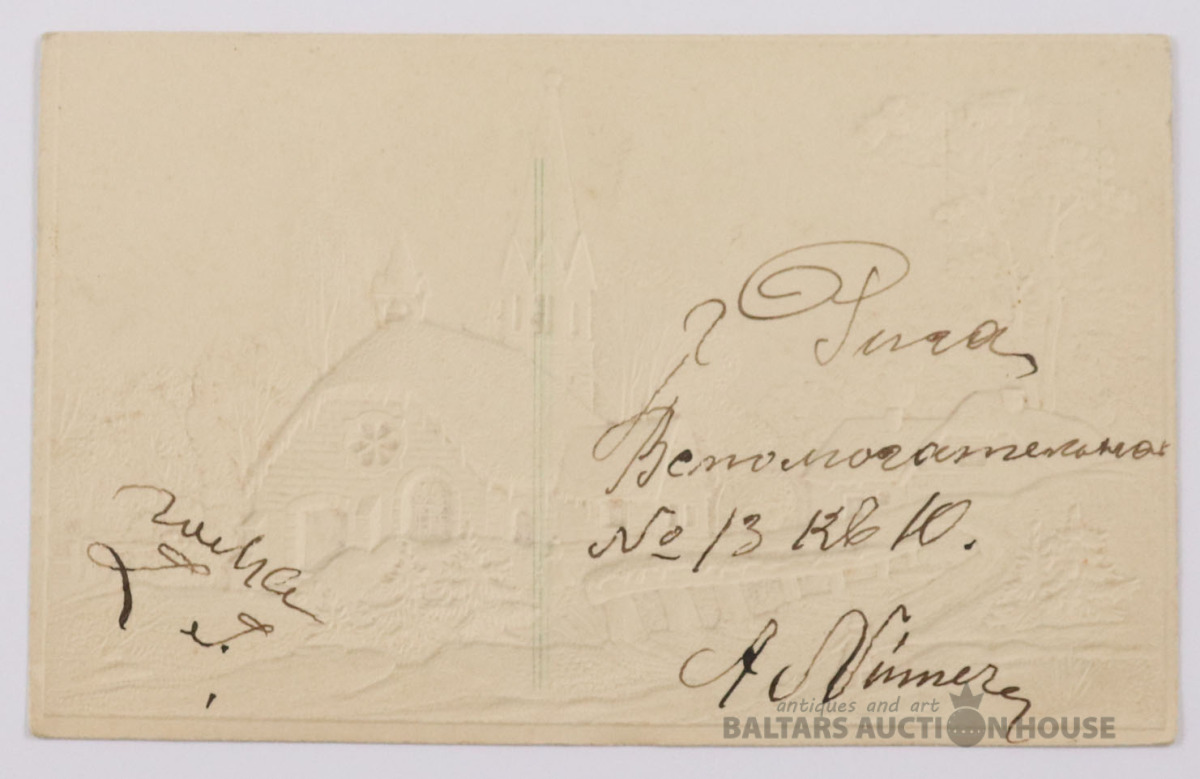 г Рига
Вспомогательная
No 13 кв 10.
А
antiques and art
BALTARS AUCTION HOUSE